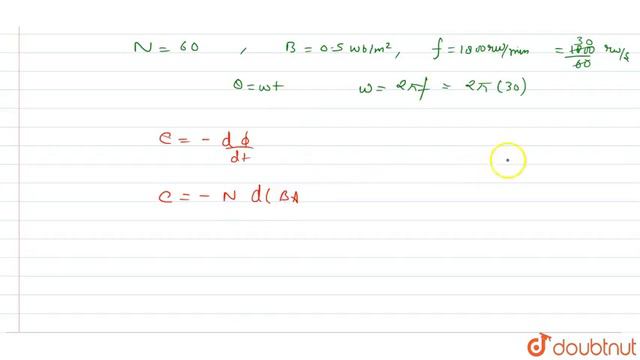 N = 60 , B = 0.5 wb/m², f = 1800 rev/min = 30 1800/60 rev/s
θ = wt w = 2πf = 2π(30)
e = - dϕ/dt
e = - N d(BA
doubtnut